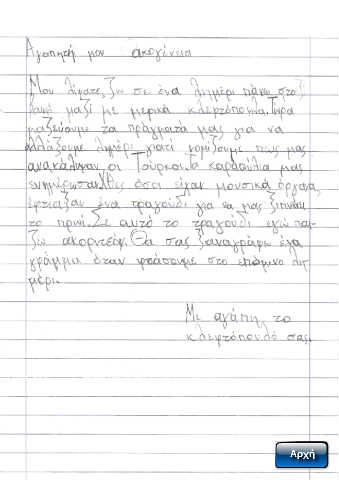 Αγαπητή μου οικογένεια
Μου λίπατε, ζω σε ένα λημέρι πάνω στο
βουνό μαζί με μερικά κλεφτόπουλα. Τώρα
μαζεύουμε τα πράγματά μας για να
αλλάξουμε λημέρι γιατί νομίζουμε πως μας
ανακάλυψαν οι Τούρκοι. Τα καραούλια μας
όσοι είχαν μουσικά όργανα,
έφτιαξαν ένα τραγούδι για να μας ξυπνάει
το πρωί. Σε αυτό το τραγούδι εγώ παί-
ζω ακορντεόν. Θα σας ξαναγράψω ένα
γράμμα όταν φτάσουμε στο επόμενο λη-
μέρι.
Με αγάπη, το
κλεφτόπουλό σας.
Αρχή